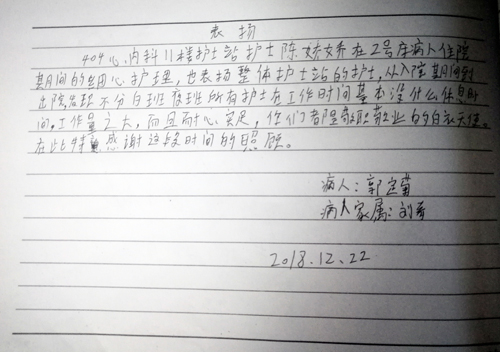 表扬
404心内科11楼护士站护士陈娇娇在2号床病人住院
期间的细心护理,也表扬整体护士站的护士,从入院期间到
出院发现不分白班夜班所有护士在工作时间基本没什么休息时
间。工作量之大,而且耐心实足,你们都是敬职敬业的白衣天使。
在此特感谢这段时间的照顾。
病人:郭
病人家属:刘
2018.12.22